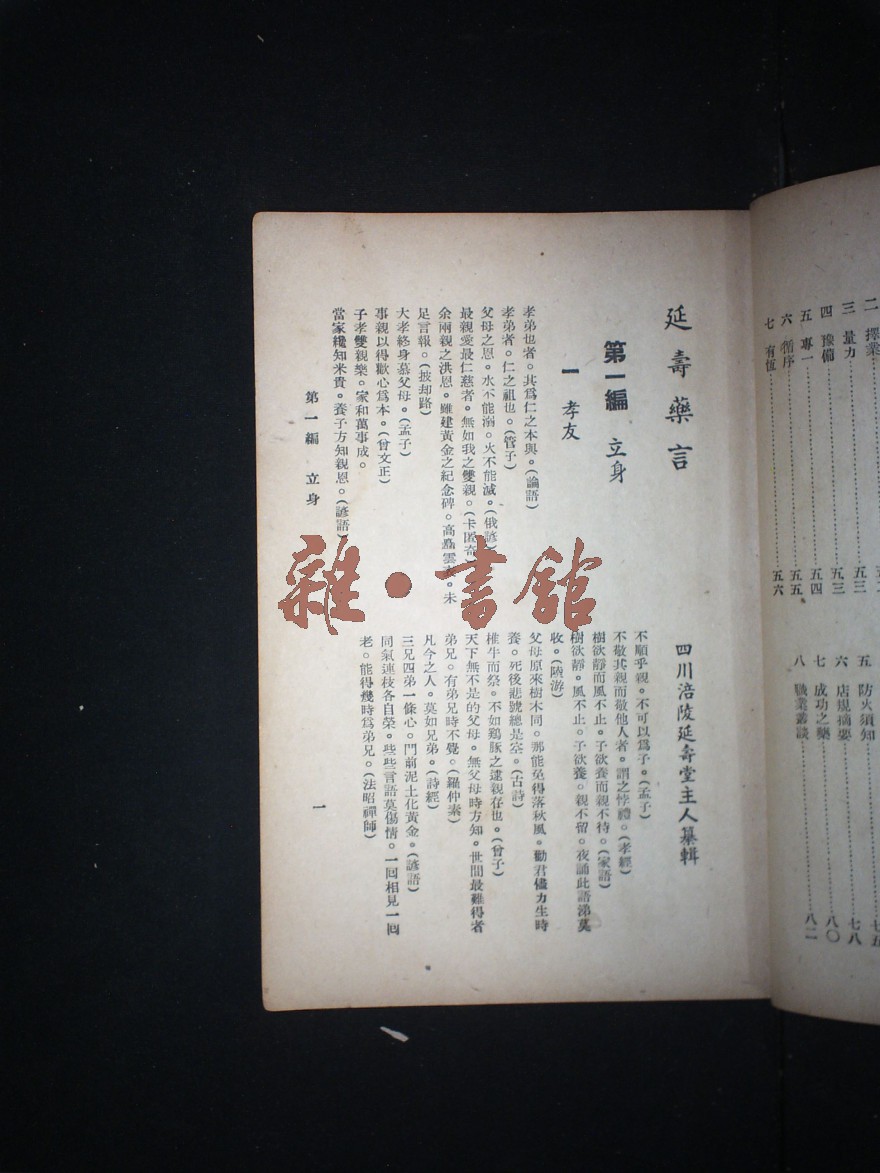 二 擇業
三 量力 五三
四 豫備 五三
五 專一 五四
六 循序 五五
七 有恆 五六
五 防火須知 七五
六 店規摘要 七八
七 成功之藥 八〇
八 職業叢談 八二
延壽藥言
四川涪陵延壽堂主人纂輯
第一編 立身
一 孝友
孝弟也者。其爲仁之本與。(論語)
孝弟者。仁之祖也。(管子)
父母之恩。水不能溺。火不能滅。(俄諺)
最親愛最仁慈者。無如我之雙親。(卡匿奇)
余兩親之洪恩。雖建黃金之紀念碑。高矗雲表。未
足言報。(披却路)
大孝終身慕父母。(孟子)
事親以得歡心爲本。(曾文正)
子孝雙親樂。家和萬事成。
當家纔知米貴。養子方知親恩。(諺語)
不順乎親。不可以爲子。(孟子)
不敬其親而敬他人者。謂之悖禮。(孝經)
樹欲靜而風不止。子欲養而親不待。(家語)
樹欲靜。風不止。子欲養。親不留。夜誦此語涕莫
收。(陸游)
父母原來樹木同。那能免得落秋風。勸君儘力生時
養。死後悲號總是空。(古詩)
椎牛而祭。不如鷄豚之逮親存也。(曾子)
天下無不是的父母。無父母時方知。世間最難得者
弟兄。有弟兄時不覺。(羅仲素)
凡今之人。莫如兄弟。(詩經)
三兄四弟一條心。門前泥土化黃金。(諺語)
同氣連枝各自榮。些些言語莫傷情。一回相見一回
老。能得幾時爲弟兄。(法昭禪師)
第一編 立身
一
雜·書館